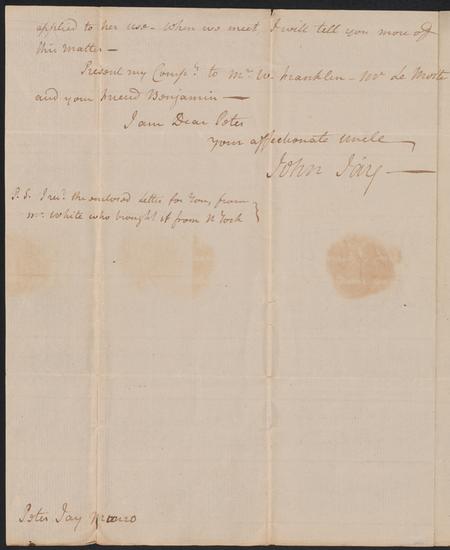 applied to her use - When we meet, I will tell you more of
this matter —
Present my Compts. to Mr. W. Franklin - Mr. de Monte
and your friend Benjamin —
I am Dear Peter
your affectionate uncle
John Jay —
P.S. I recd. the enclosed Letter for You, from
Mr. White who brought it from N York
Peter Jay Munro